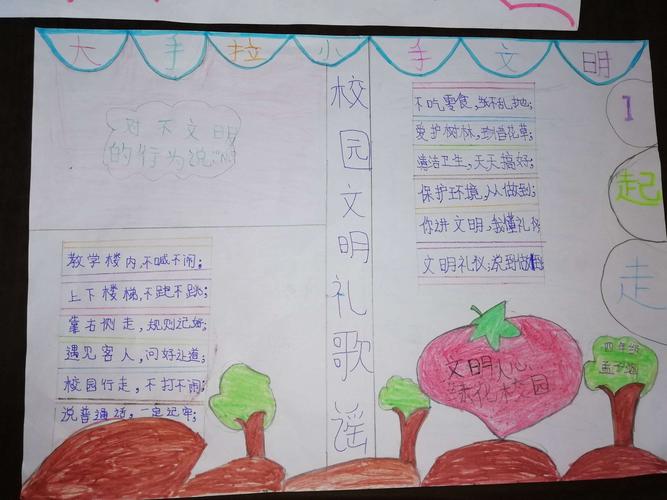 大手拉小手文明
1
起
走
对不文明
的行为说"No"
校园文明礼歌谣
教学楼内,不喊不闹;
上下楼梯,不跑不跳;
靠右侧走,规则记好;
遇见客人,问好让道;
校园行走,不打不闹;
说普通话,一定记牢;
不吃零食,纸不乱抛;
爱护树林,珍惜花草;
清洁卫生,天天搞好;
保护环境,人人做到;
你讲文明,我懂礼仪
文明礼仪;说到做到
文明人心
绿化校园
四年级